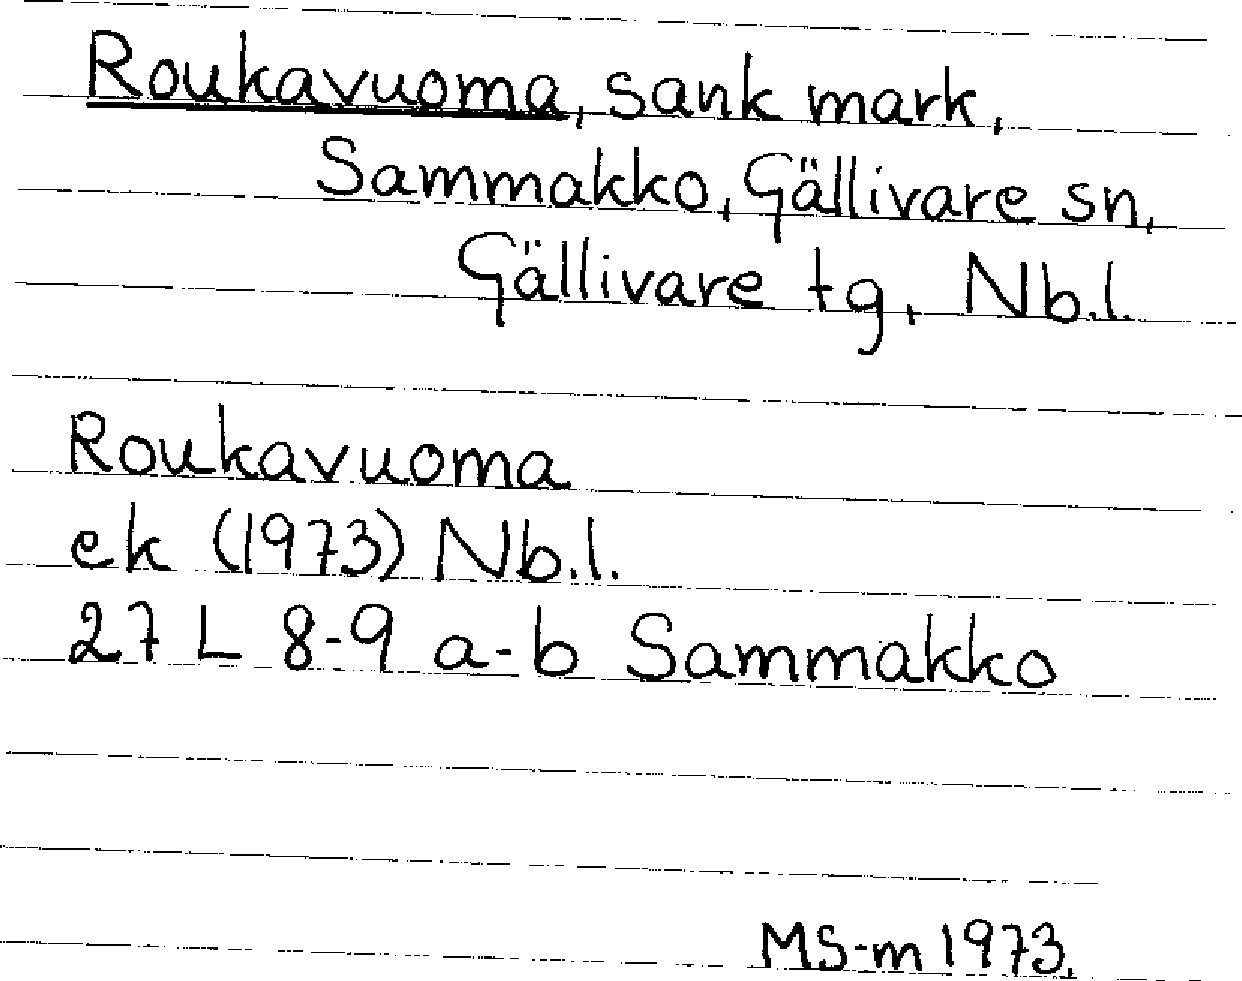 Roukavuoma, sank mark,
Sammakko, Gällivare sn,
Gällivare tg, Nb.l.
Roukavuoma
ek (1973) Nb.l.
27 L 8-9 a-b Sammakko
MS-m 1973.